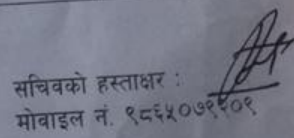 सचिवको हस्ताक्षर :
मोबाइल नं. ९८६५०७९९०९